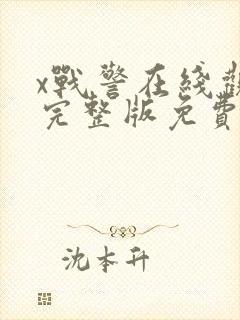 x戰警在綫觀
完整版免費
沈本升